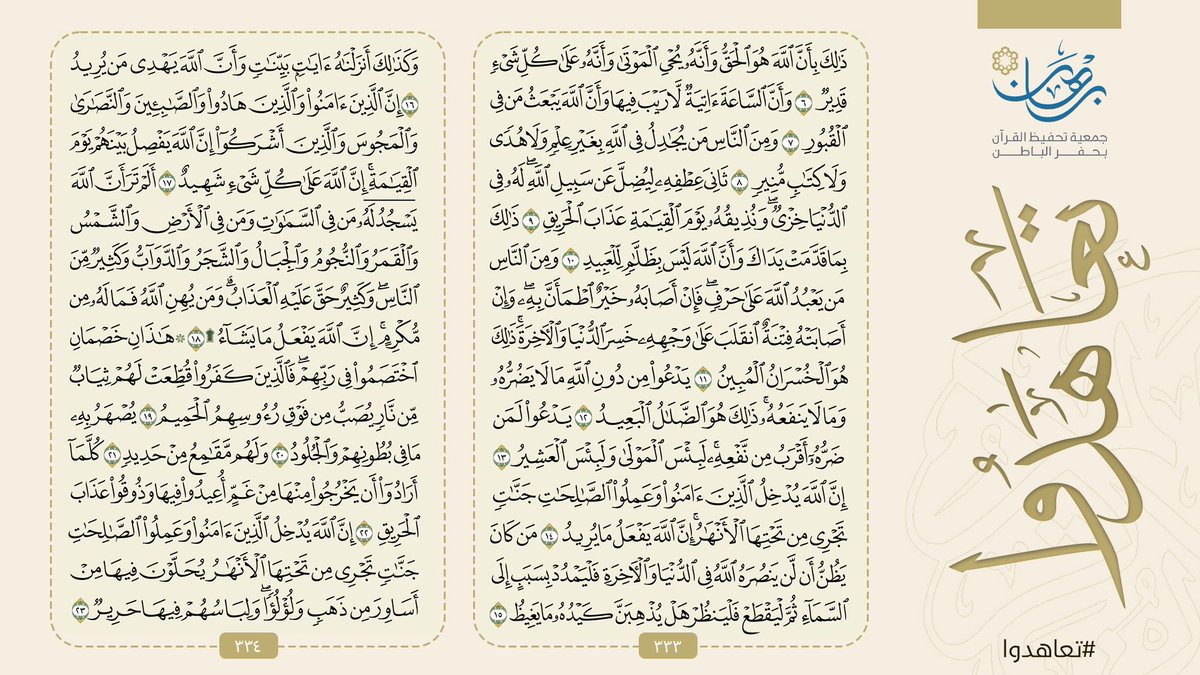 برهان
جمعية تحفيظ القرآن
بحفر الباطن
تعاهدوا
#تعاهدوا
ذَٰلِكَ بِأَنَّ ٱللَّهَ هُوَ ٱلْحَقُّ وَأَنَّهُۥ يُحْىِ ٱلْمَوْتَىٰ وَأَنَّهُۥ عَلَىٰ كُلِّ شَىْءٍ
قَدِيرٌ ٦ وَأَنَّ ٱلسَّاعَةَ ءَاتِيَةٌ لَّا رَيْبَ فِيهَا وَأَنَّ ٱللَّهَ يَبْعَثُ مَن فِى
ٱلْقُبُورِ ٧ وَمِنَ ٱلنَّاسِ مَن يُجَٰدِلُ فِى ٱللَّهِ بِغَيْرِ عِلْمٍ وَلَا هُدًى
وَلَا كِتَٰبٍ مُّنِيرٍ ٨ ثَانِىَ عِطْفِهِۦ لِيُضِلَّ عَن سَبِيلِ ٱللَّهِ لَهُۥ فِى
ٱلدُّنْيَا خِزْىٌ وَنُذِيقُهُۥ يَوْمَ ٱلْقِيَٰمَةِ عَذَابَ ٱلْحَرِيقِ ٩ ذَٰلِكَ
بِمَا قَدَّمَتْ يَدَاكَ وَأَنَّ ٱللَّهَ لَيْسَ بِظَلَّٰمٍ لِّلْعَبِيدِ ١٠ وَمِنَ ٱلنَّاسِ
مَن يَعْبُدُ ٱللَّهَ عَلَىٰ حَرْفٍ فَإِنْ أَصَابَهُۥ خَيْرٌ ٱطْمَأَنَّ بِهِۦ وَإِنْ
أَصَابَتْهُ فِتْنَةٌ ٱنقَلَبَ عَلَىٰ وَجْهِهِۦ خَسِرَ ٱلدُّنْيَا وَٱلْءَاخِرَةَ ذَٰلِكَ
هُوَ ٱلْخُسْرَانُ ٱلْمُبِينُ ١١ يَدْعُوا۟ مِن دُونِ ٱللَّهِ مَا لَا يَضُرُّهُۥ
وَمَا لَا يَنفَعُهُۥ ذَٰلِكَ هُوَ ٱلضَّلَٰلُ ٱلْبَعِيدُ ١٢ يَدْعُوا۟ لَمَن
ضَرُّهُۥٓ أَقْرَبُ مِن نَّفْعِهِۦ لَبِئْسَ ٱلْمَوْلَىٰ وَلَبِئْسَ ٱلْعَشِيرُ ١٣
إِنَّ ٱللَّهَ يُدْخِلُ ٱلَّذِينَ ءَامَنُوا۟ وَعَمِلُوا۟ ٱلصَّٰلِحَٰتِ جَنَّٰتٍ
تَجْرِى مِن تَحْتِهَا ٱلْأَنْهَٰرُ إِنَّ ٱللَّهَ يَفْعَلُ مَا يُرِيدُ ١٤ مَن كَانَ
يَظُنُّ أَن لَّن يَنصُرَهُ ٱللَّهُ فِى ٱلدُّنْيَا وَٱلْءَاخِرَةِ فَلْيَمْدُدْ بِسَبَبٍ إِلَى
ٱلسَّمَآءِ ثُمَّ لْيَقْطَعْ فَلْيَنظُرْ هَلْ يُذْهِبَنَّ كَيْدُهُۥ مَا يَغِيظُ ١٥
٣٣٣
وَكَذَٰلِكَ أَنزَلْنَٰهُ ءَايَٰتٍۭ بَيِّنَٰتٍ وَأَنَّ ٱللَّهَ يَهْدِى مَن يُرِيدُ
١٦ إِنَّ ٱلَّذِينَ ءَامَنُوا۟ وَٱلَّذِينَ هَادُوا۟ وَٱلصَّٰبِـِٔينَ وَٱلنَّصَٰرَىٰ
وَٱلْمَجُوسَ وَٱلَّذِينَ أَشْرَكُوٓا۟ إِنَّ ٱللَّهَ يَفْصِلُ بَيْنَهُمْ يَوْمَ
ٱلْقِيَٰمَةِ إِنَّ ٱللَّهَ عَلَىٰ كُلِّ شَىْءٍ شَهِيدٌ ١٧ أَلَمْ تَرَ أَنَّ ٱللَّهَ
يَسْجُدُ لَهُۥ مَن فِى ٱلسَّمَٰوَٰتِ وَمَن فِى ٱلْأَرْضِ وَٱلشَّمْسُ
وَٱلْقَمَرُ وَٱلنُّجُومُ وَٱلْجِبَالُ وَٱلشَّجَرُ وَٱلدَّوَآبُّ وَكَثِيرٌ مِّنَ
ٱلنَّاسِ وَكَثِيرٌ حَقَّ عَلَيْهِ ٱلْعَذَابُ وَمَن يُهِنِ ٱللَّهُ فَمَا لَهُۥ مِن
مُّكْرِمٍ إِنَّ ٱللَّهَ يَفْعَلُ مَا يَشَآءُ ۩ ١٨ ۞ هَٰذَانِ خَصْمَانِ
ٱخْتَصَمُوا۟ فِى رَبِّهِمْ فَٱلَّذِينَ كَفَرُوا۟ قُطِّعَتْ لَهُمْ ثِيَابٌ
مِّن نَّارٍ يُصَبُّ مِن فَوْقِ رُءُوسِهِمُ ٱلْحَمِيمُ ١٩ يُصْهَرُ بِهِۦ
مَا فِى بُطُونِهِمْ وَٱلْجُلُودُ ٢٠ وَلَهُم مَّقَٰمِعُ مِنْ حَدِيدٍ ٢١ كُلَّمَآ
أَرَادُوٓا۟ أَن يَخْرُجُوا۟ مِنْهَا مِنْ غَمٍّ أُعِيدُوا۟ فِيهَا وَذُوقُوا۟ عَذَابَ
ٱلْحَرِيقِ ٢٢ إِنَّ ٱللَّهَ يُدْخِلُ ٱلَّذِينَ ءَامَنُوا۟ وَعَمِلُوا۟ ٱلصَّٰلِحَٰتِ
جَنَّٰتٍ تَجْرِى مِن تَحْتِهَا ٱلْأَنْهَٰرُ يُحَلَّوْنَ فِيهَا مِنْ
أَسَاوِرَ مِن ذَهَبٍ وَلُؤْلُؤًا وَلِبَاسُهُمْ فِيهَا حَرِيرٌ ٢٣
٣٣٤